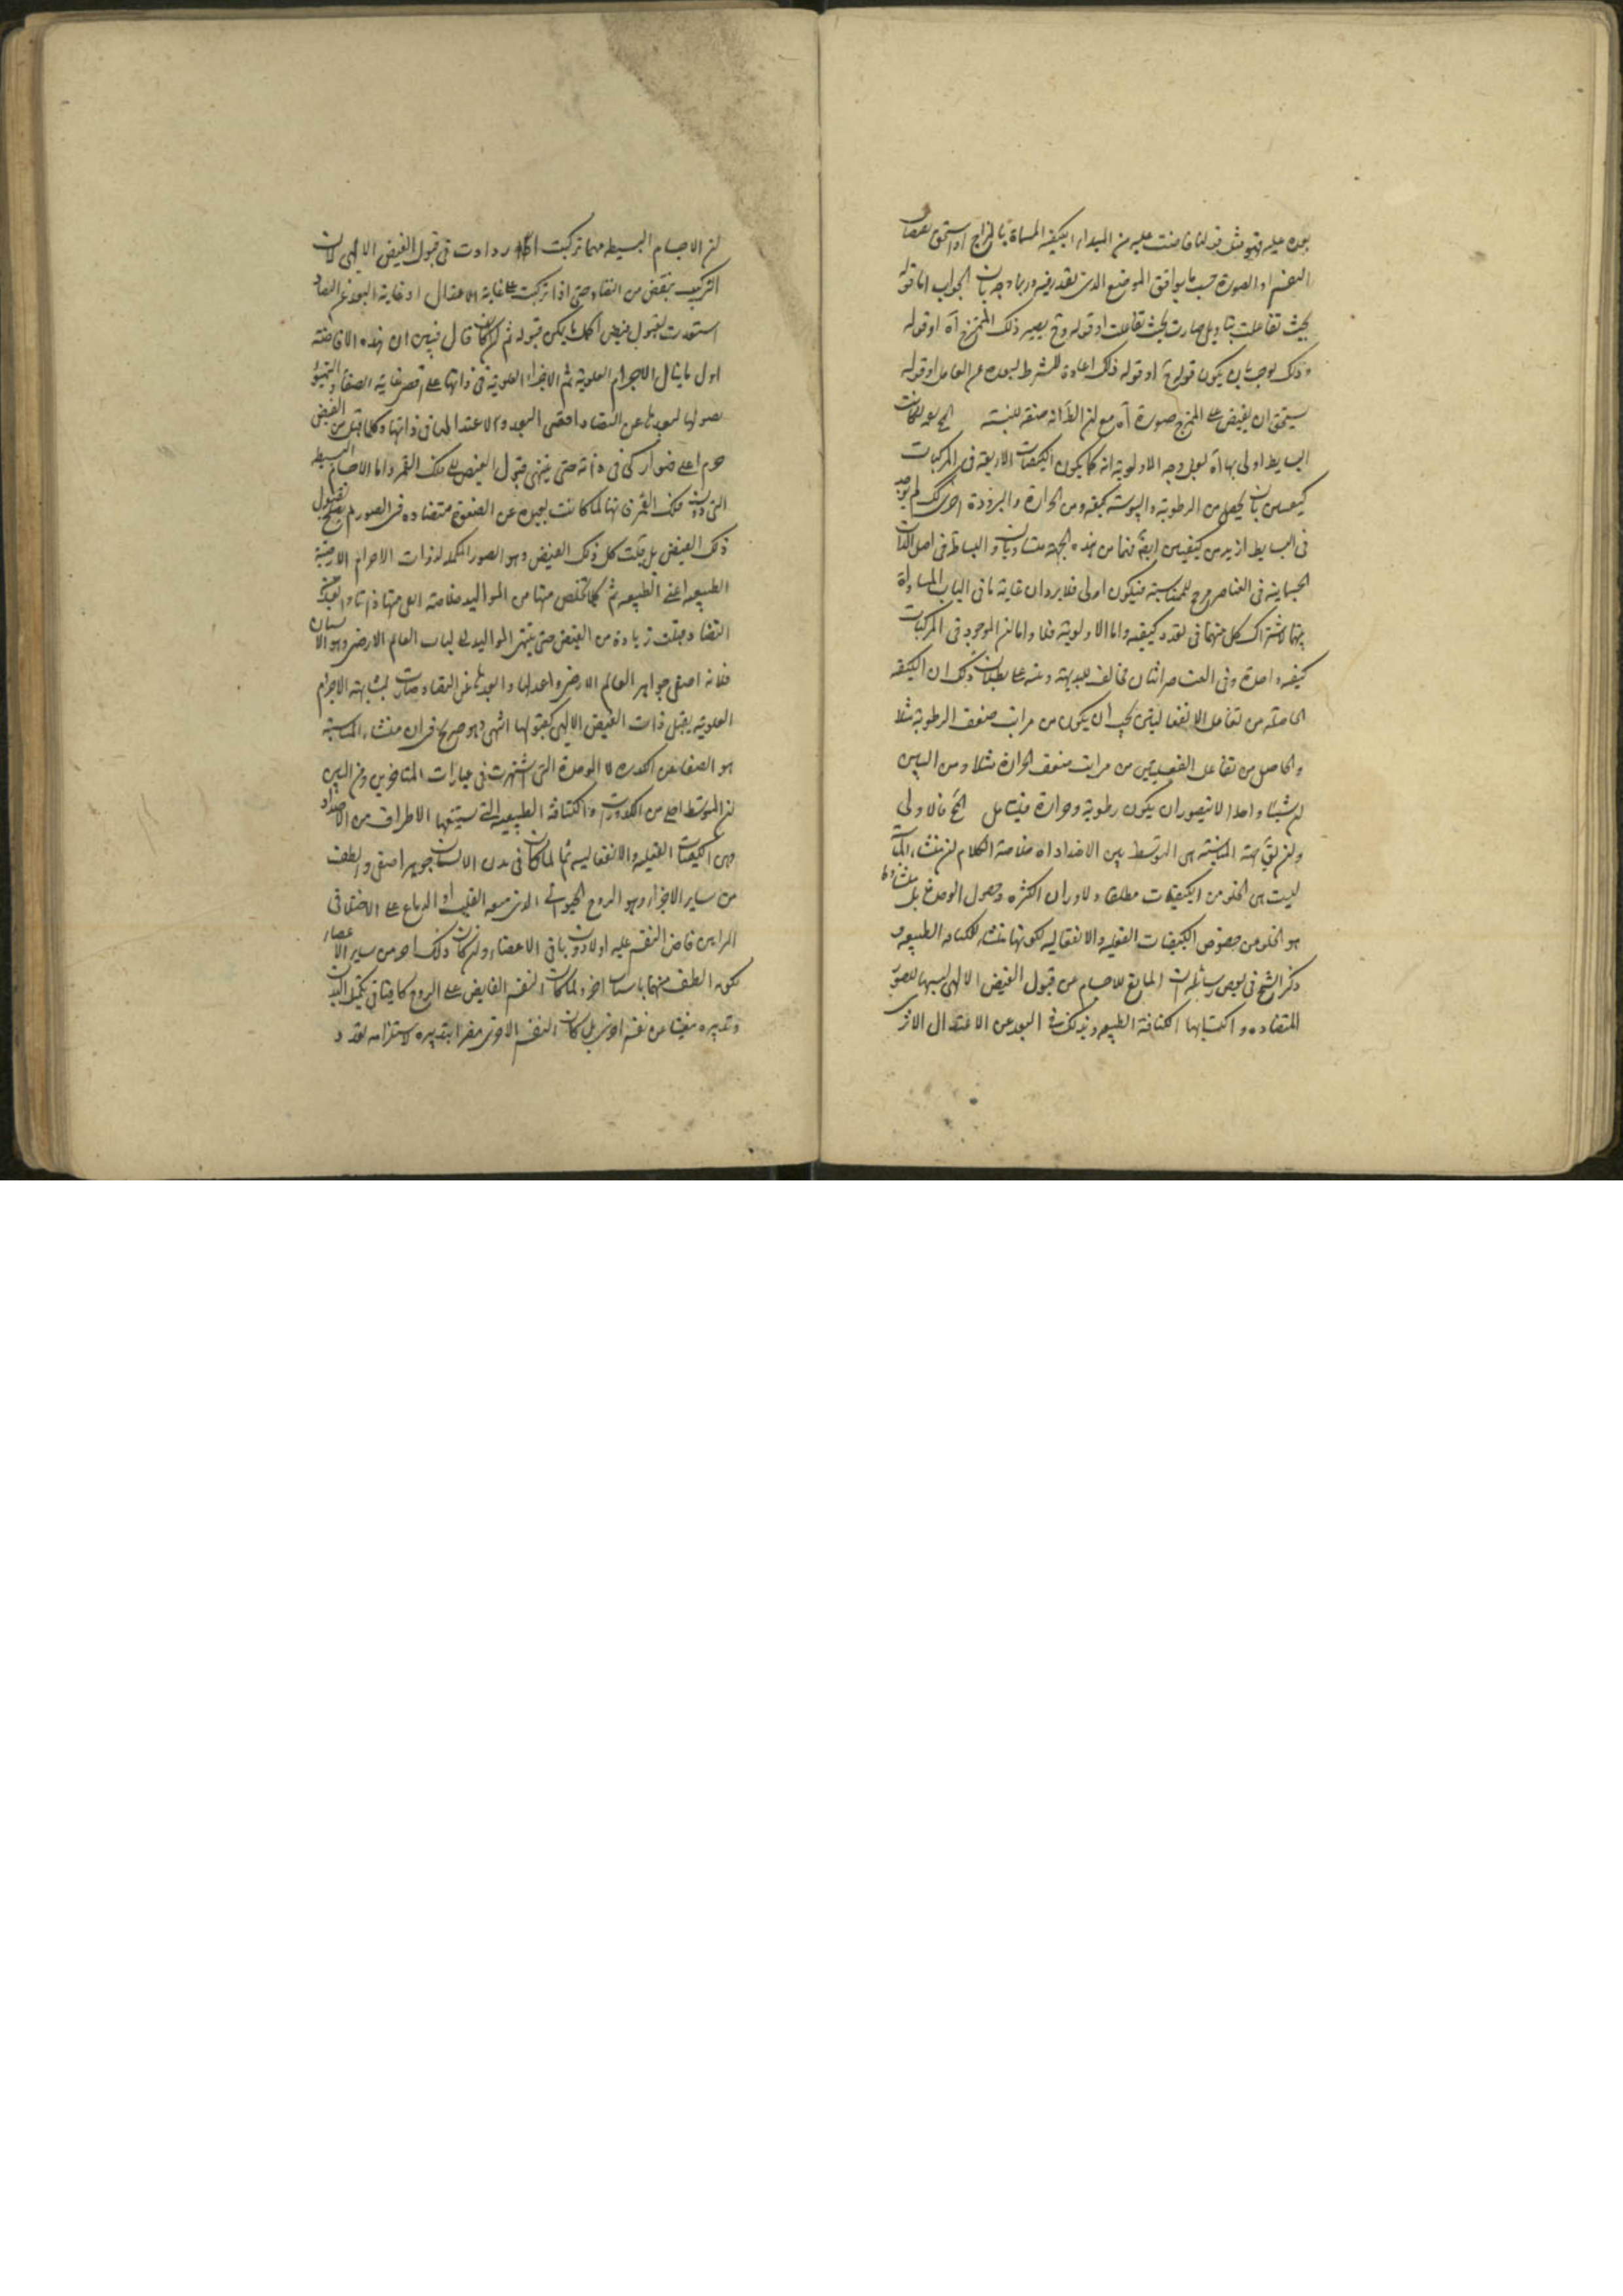 بعده عليه فهو مثل قولنا فاضت عليه من المبداء الكيفية المسماة بالمزاج او استحق لفيضان
النفس او الصورة حسب ما يوافق الموضع الذى يقدر فيه وربما وجه بان الجواب اما قوله
بحيث تفاعلت بتاويل صارت بحيث تفاعلت او قوله وح يصير ذلك الممتزج آه او قوله
وذلك يوجب بان يكون قوله ح او قوله ذلك اعادة للشرط لبعده عن العامل او قوله
يستحق ان يفيض على الممتزج صورة آه مع ان الظ انه صفة للبنية
البسايط اولى بها آه لعل وجه الاولوية انه كما يكون الكيفيات الاربعة فى المركبات
كيفيتين بان يحصل من الرطوبة واليبوسة كيفية ومن الحرارة والبرودة اخرى كك لم يوجد
فى البسايط ازيد من كيفيتين ايضا فهما من هذه الجهة متساويان والبساطة فى اصل الذات
الجسمانية فى العناصر مرجح للمناسبة فيكون اولى فلا يرد ان غاية ما فى الباب المساواة
بينهما لاشتراك كل منهما فى تعدد كيفية واما الاولوية فلا واما ان الموجود فى المركبات
كيفية واحدة وفى العناصر اثنان مخالف للبديهة ومنه على بطلان ذلك ان الكيفية
الحاصلة من تفاعل الانفعاليتين يجب ان يكون من مراتب ضعف الرطوبة مثلا
والحاصل من تفاعل الفعليتين من مراتب ضعف الحرارة مثلا ومن البين
ان شيئا واحدا لا يتصور ان يكون رطوبة وحرارة فيتامل الخ فالاولى
وان بقى جهة المناسبة هى التوسط بين الاضداد آه خلاصة الكلام ان منشاء المناسبة
ليست هى الخلو من الكيفيات مطلقا ولا دوران الكثرة وحصول الوحدة بل منشاؤها
هو الخلو عن خصوص الكيفيات الفعلية والانفعالية لكونها منشاء للكثافة الطبيعية و
ذكر الشيخ فى بعض رسائله ان المانع للاجسام عن قبول الفيض الالهى لبسها للصور
المتضادة واكتسابها الكثافة الطبيعية وبذلك فى البعد عن الاعتدال الا ترى
ان الاجسام البسيطة مهما تركبت ازدادت فى قبول الفيض الالهى لان
التركيب ينقص من التضاد حتى اذا تركبت على غاية الاعتدال او غاية البعد عن التضاد
استعدت لقبول فيض اكمل ما يمكن قبوله ثم قال فبين ان هذه الافاضة
اول ما ينال الاجرام العلوية ثم الاجزاء العلوية فى ذاتها على اقصى غاية الصفا والتهيؤ
لصولها لبعدها عن التضاد اقصى البعد والاعتدالها فى ذاتها وكلما قبل من الفيض
جرم اعلى فهو ازكى فى ذاته حتى ينتهى قبول الفيض الى فلك القمر واما الاجسام البسيطة
التى دون فلك القمر فانها لما كانت بعيدة عن الصفوة متضادة فى الصور لم يصلح لقبول
ذلك الفيض بل قبلت كل ذلك الفيض وهو الصور المكملة لذوات الاجرام الارضية
الطبيعية اعنى الطبيعة ثم كلما تخلص منها من المواليد خلاصة اعلى منها ذاتا وابعد عن
التضاد قبلت زيادة من الفيض حتى ينتهى المواليد الى لباب العالم الارضى وهو الانسان
فلانه اصفى جواهر العالم الارضى واعدلها وابعدها عن التضاد صارت لمشابهته الاجرام
العلوية يقبل ذات الفيض الالهى كقبولها انتهى وهو صريح فى ان منشاء المناسبة
هو الصفا عن الكدورة لا الوحدة التى اشتهرت فى عبارات المتاخرين ومن البين
ان المتوسط اخلى من الكدورات والكثافة الطبيعية التى يستتبعها الاطراف من الاضداد
وهى الكيفيات الفعلية والانفعالية ثم لما كان فى بدن الانسان جوهر اصفى والطف
من ساير الاجزاء وهو الروح الحيوانى الذى منبعه القلب او الدماغ على الاختلاف
المراتب فاض النفس عليه اولا دون باقى الاعضاء وان كان ذلك احد من ساير الاعضاء
لكونه الطف منها باسباب اخر ولما كان النفس الفايض على الروح كافيا فى تكميل البدن
وتدبيره مغنيا عن نفس اخرى بل كان النفس الاخرى مضرا بتدبيره لاستلزامه تعدد